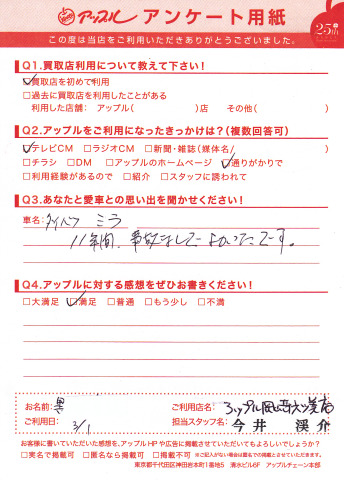 アップル アンケート用紙 25th
この度は当店をご利用いただきありがとうございました。
Q1.買取店利用について教えて下さい!
☑買取店を初めて利用
□過去に買取店を利用したことがある
利用した店舗: アップル( )店 その他( )
Q2.アップルをご利用になったきっかけは?(複数回答可)
☑テレビCM □ラジオCM □新聞・雑誌(媒体名/ )
□チラシ □DM □アップルのホームページ ☑通りがかりで
□利用経験があるので □紹介 □スタッフに誘われて
Q3.あなたと愛車との思い出を聞かせください!
車名: ダイハツ ミラ
11年間、事故なしでよかったです。
Q4.アップルに対する感想をぜひお書きください!
□大満足 ☑満足 □普通 □もう少し □不満
お名前: ご利用店名: アップル岡山店
ご利用日: 3/1 担当スタッフ名: 今井 渓介
お客様に書いていただいた感想を、アップルHPや広告に掲載させていただいてもよろしいでしょうか?
□実名で掲載可 □匿名なら掲載可 □掲載不可 ※ご記入がない場合は匿名での掲載とさせていただきます。
東京都千代田区神田岩本町1番地5 清水ビル6F アップルチェーン本部